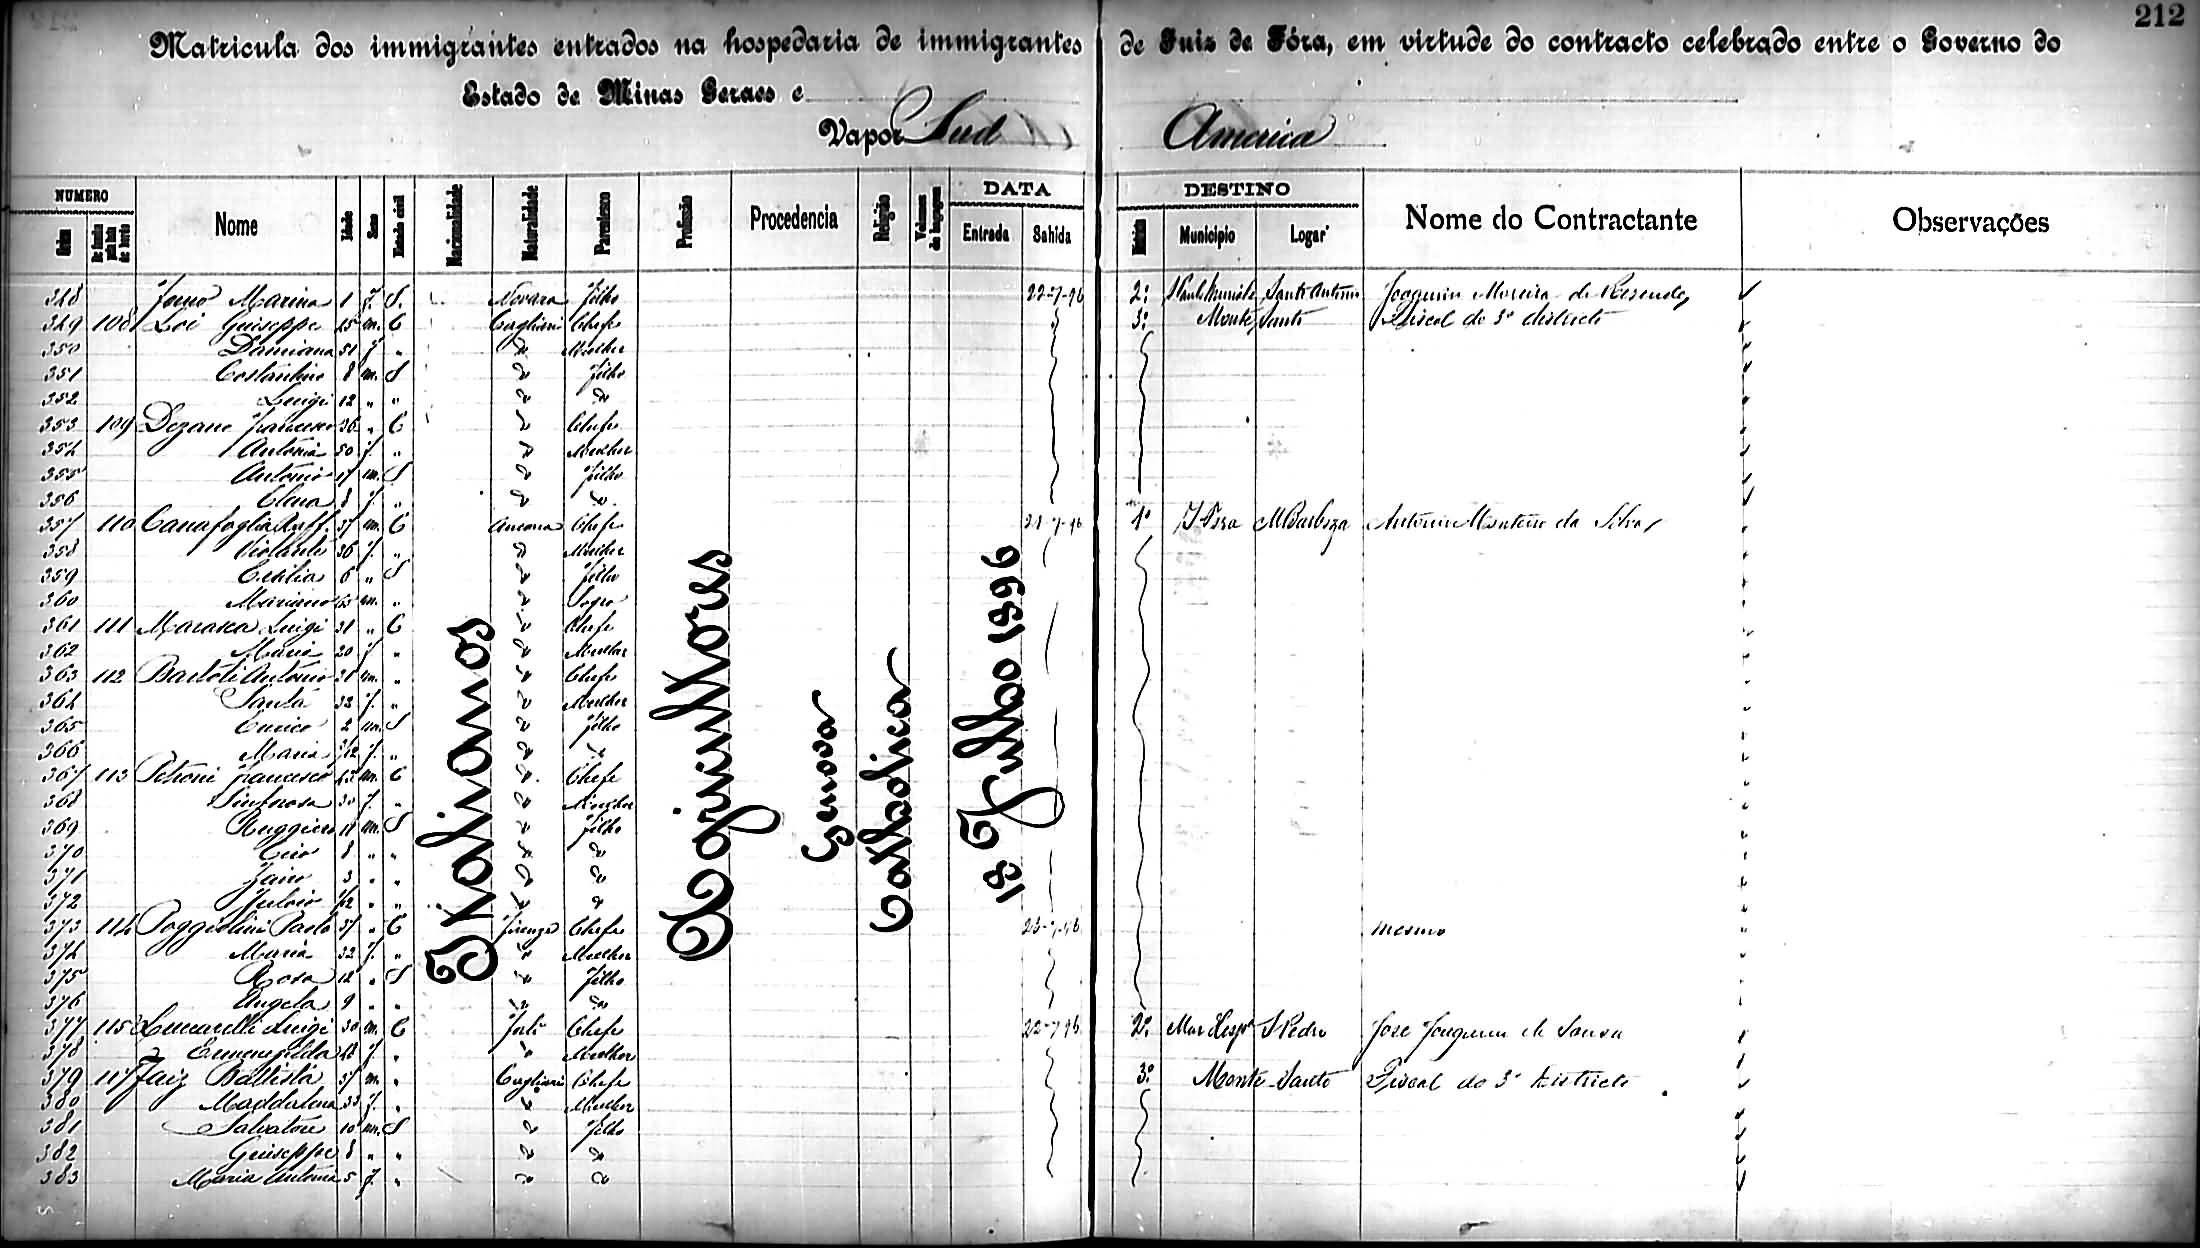 212
Matricula dos immigrantes entrados na hospedaria de immigrantes de Juiz de Fóra, em virtude do contracto celebrado entre o Governo do
Estado de Minas Geraes e
Vapor Sud America
NUMERO DATA DESTINO
Nome Idade Sexo Estado civil Nacionalidade Naturalidade Parentesco Profissão Procedencia Religião Volumes de bagagem Entrada Sahida Municipio Logar Nome do Contractante Observações
348 Marina 1 f. S. Novara Filho 22-7-96 2º Santo Antonio Joaquim Moreira de Resende
349 108 Loi Guiseppe 45 m. C Cagliari Chefe 3º Monte Santo Fiscal do 3º districto
350 Damiana 51 f. " " Mulher
351 Costantino 8 m. S " Filho
352 Luigi 12 " " " "
353 109 Dezane Francesco 36 " C " Chefe
354 Antonia 50 f. " " Mulher
355 Antonio 17 m. S " Filho
356 8 f. " " "
357 110 Canafoglia Raff. 37 m. C Ancona Chefe 21-7-96 1º J Fora M Barboza Antonio Monteiro da Silva
358 Violante 36 f. " " Mulher
359 Ersilia 6 " S " Filho
360 Mariano 65 m. " " Sogro
361 111 Marasca Luigi 31 " C " Chefe
362 Maria 20 f. " " Mulher
363 112 Bartoli Antonio 31 m. " " Chefe
364 Santa 32 f. " " Mulher
365 Enrico 2 m. S " Filho
366 Maria f. " " "
367 113 Petroni Francesco 43 m. C " Chefe
368 Sinforosa 30 f. " " Mulher
369 Ruggiero 11 m. S " Filho
370 Ciro 8 " " " "
371 3 " " " "
372 " " " "
373 114 Poggiolini Paolo 37 " C Firenze Chefe 23-7-96 mesmo
374 Maria 32 f. " " Mulher
375 Rosa 12 " S " Filho
376 Angela 9 " " " "
377 115 Luccarelli Luigi 30 m. C Forli Chefe 22-7-96 2º Mar Hespª S Pedro José Joaquim de Souza
378 Ermenegilda f. " " Mulher
379 117 Faiz Battista 37 m. " Cagliari Chefe 3º Monte Santo Fiscal do 3º districto
380 Maddalena 33 f. " " Mulher
381 Salvatore 10 m. S " Filho
382 Giuseppe 8 " " " "
383 Maria Antonia 5 f. " " "
Italianos
Agricultores
Genova
Catholica
18 Julho 1896